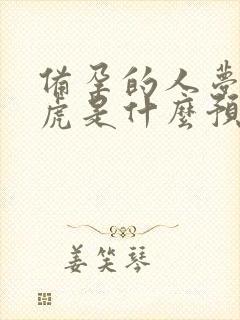 备孕的人夢
虎是什麽預
姜笑琴